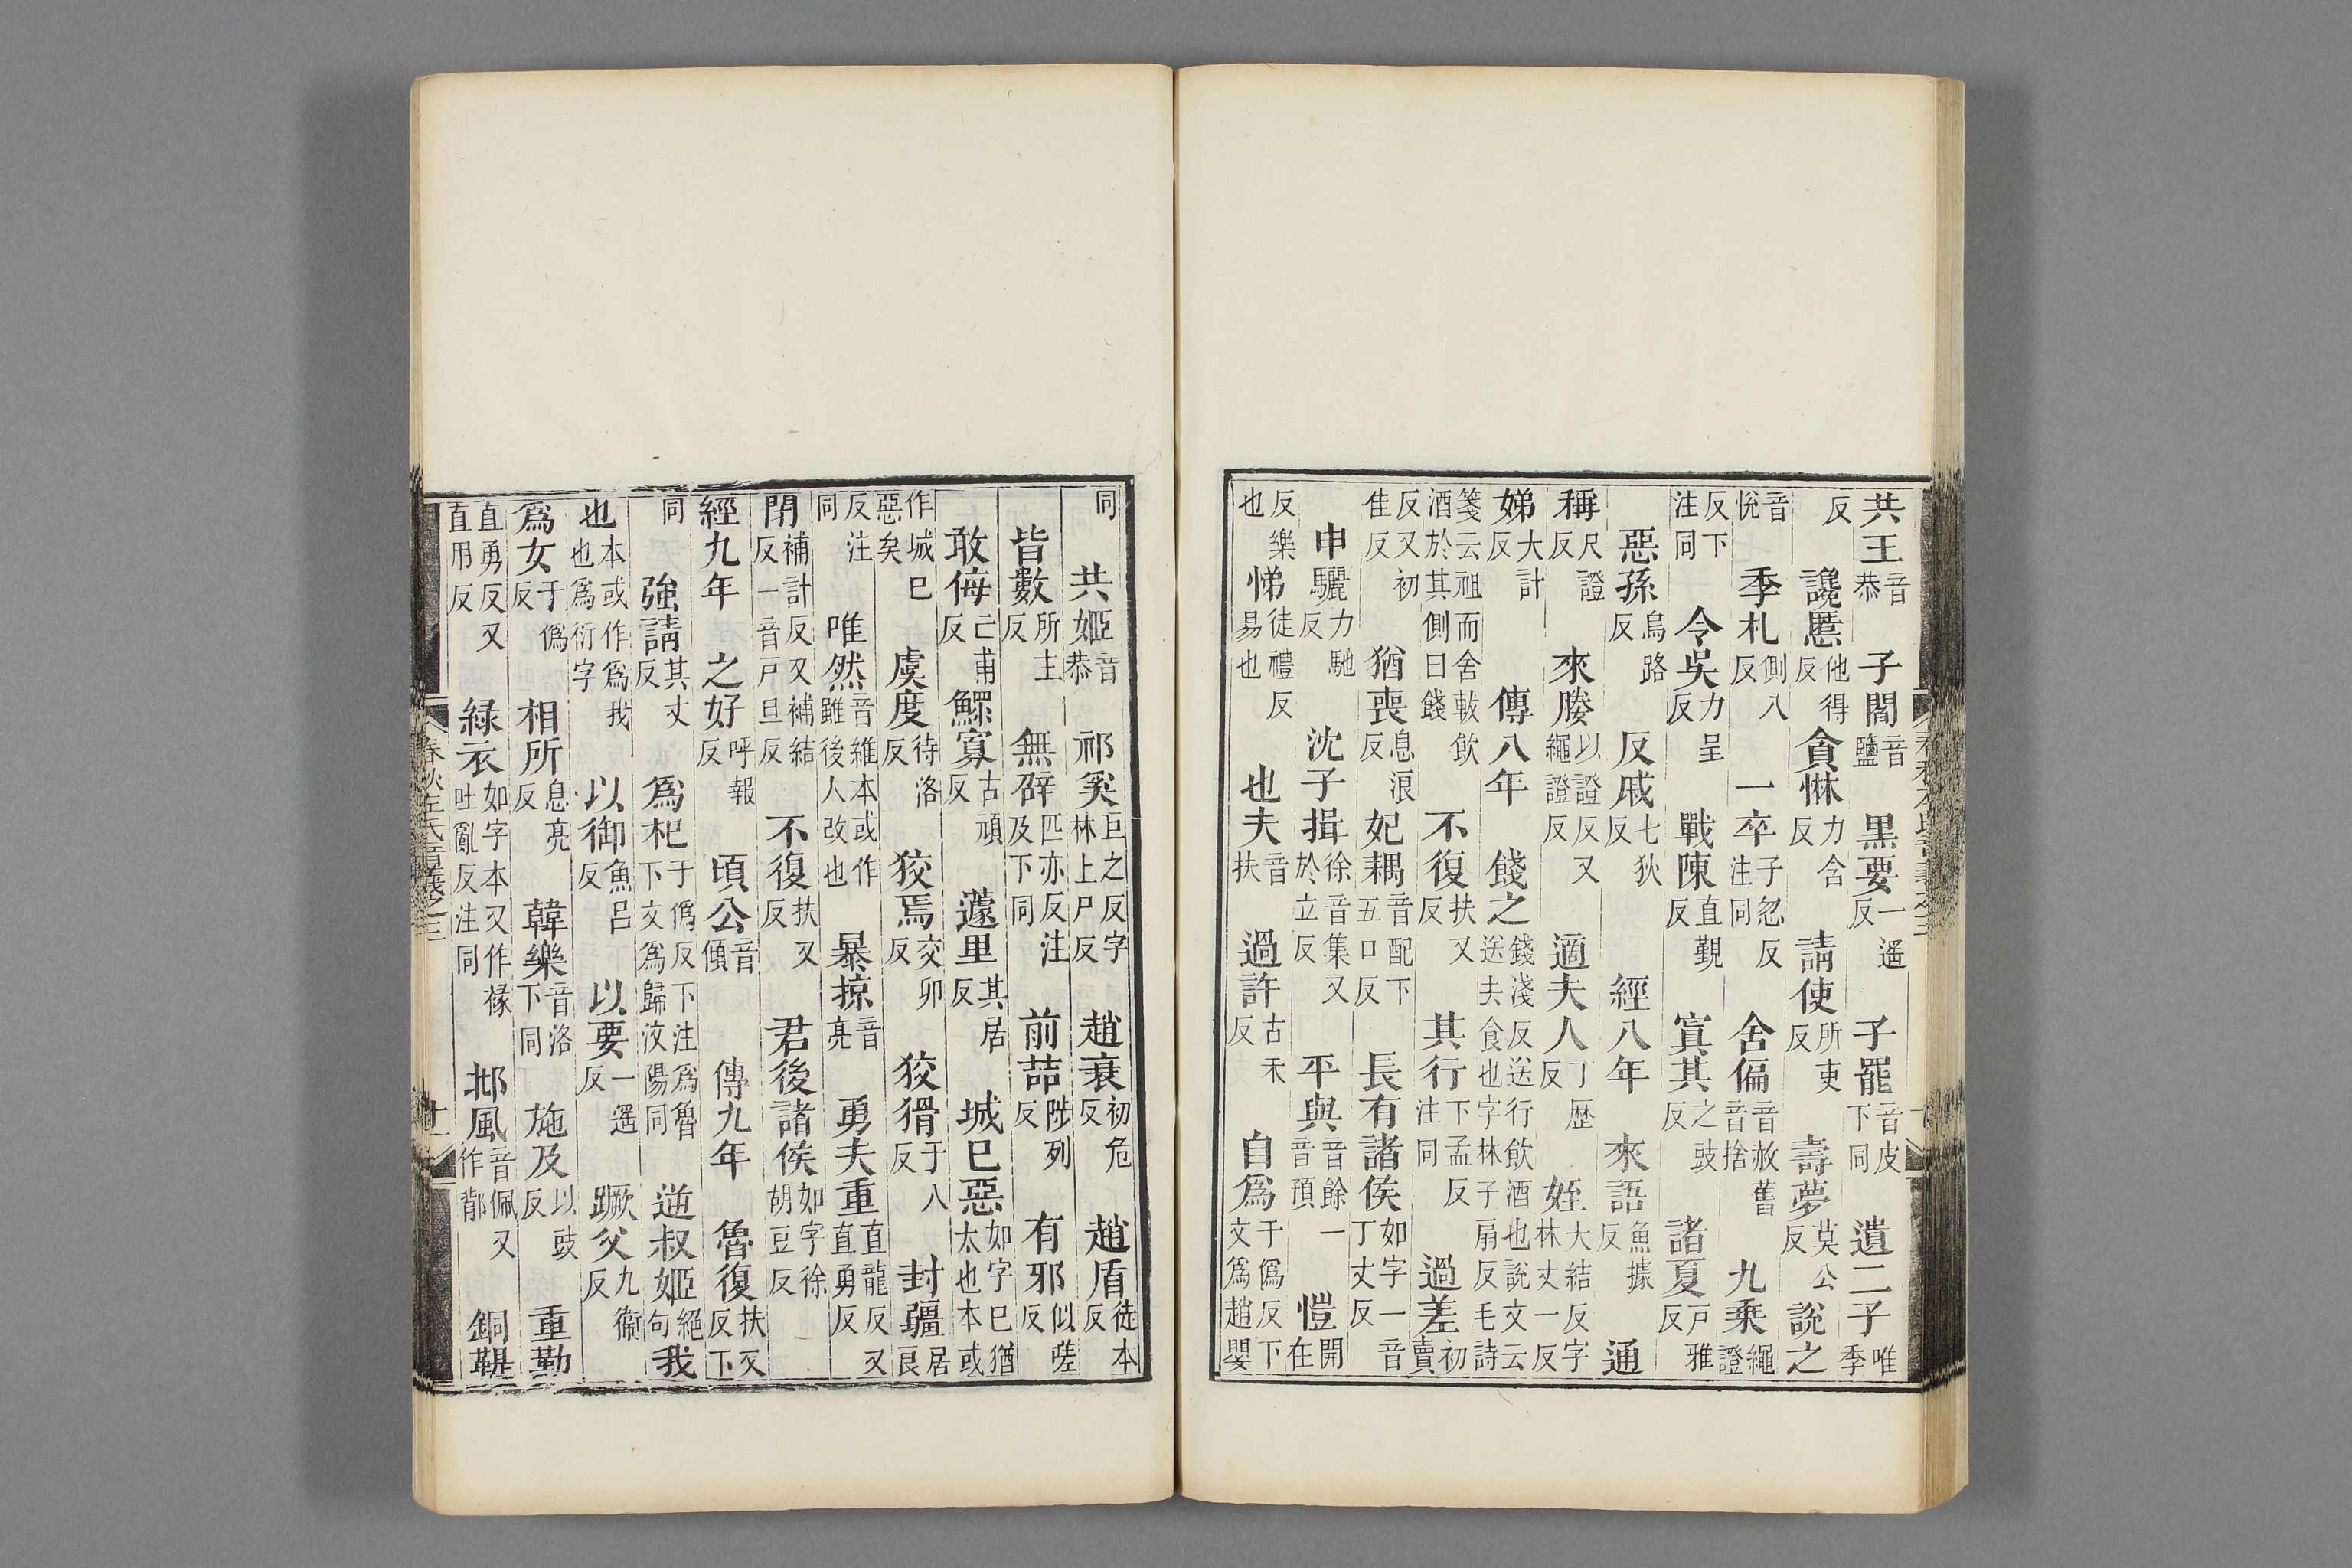 共王音恭子閻音鹽黑要一遥反子罷音皮下同遺二子唯季
反讒慝他得反貪惏力含反請使所吏反壽夢莫公反說之
音悅季札側八反一卒子忽反注同舍偏音赦舊音捨九乘繩證
反下注同令吳力呈反戰陳直覲反寘其之豉反諸夏戶雅反
惡孫烏路反反戚七狄反經八年來語魚據反通
稱尺證反來媵以證反又繩證反適夫人丁歷反姪大結反字林丈一反
娣大計反傳八年餞之錢淺反送行飲酒也說文云送去食也字林子扇反毛詩
箋云祖而舍軷飲酒於其側曰餞不復扶又反其行下孟反注同過差初賣
反又初佳反猶喪息浪反妃耦音配下五口反長有諸侯如字一音丁丈反
申驪力馳反沈子揖徐音集又於立反平與音餘一音預愷開在
反樂也悌徒禮反易也也夫音扶過許古禾反自爲于僞反下文爲趙嬰
同共姬音恭祁奚巨之反字林上尸反趙衰初危反趙盾徒本反
皆數所主反無辟匹亦反注及下同前喆陟列反有邪似嗟反
敢侮亡甫反鰥寡古頑反蘧里其居反城已惡如字已猶太也本或
作城已惡矣虞度待洛反狡焉交卯反狡猾于八反封疆居良
反注同唯然音維本或作雖後人改也暴掠音亮勇夫重直龍反又直勇反
閉補計反又補結反一音戶旦反不復扶又反君後諸侯如字徐胡豆反
經九年之好呼報反頃公音傾傳九年魯復扶又反下
同強請其丈反爲杞于僞反下注爲魯下文爲歸汶陽同逆叔姬絕句我
也本或作爲我也爲衍字以御魚呂反以要一遥反蹶父九衞反
爲女于僞反相所息亮反韓樂音洛下同施及以豉反重勤
直勇反又直用反緑衣如字本又作褖吐亂反注同邶風音佩又作鄁銅鞮
春秋左氏音義之三 十一